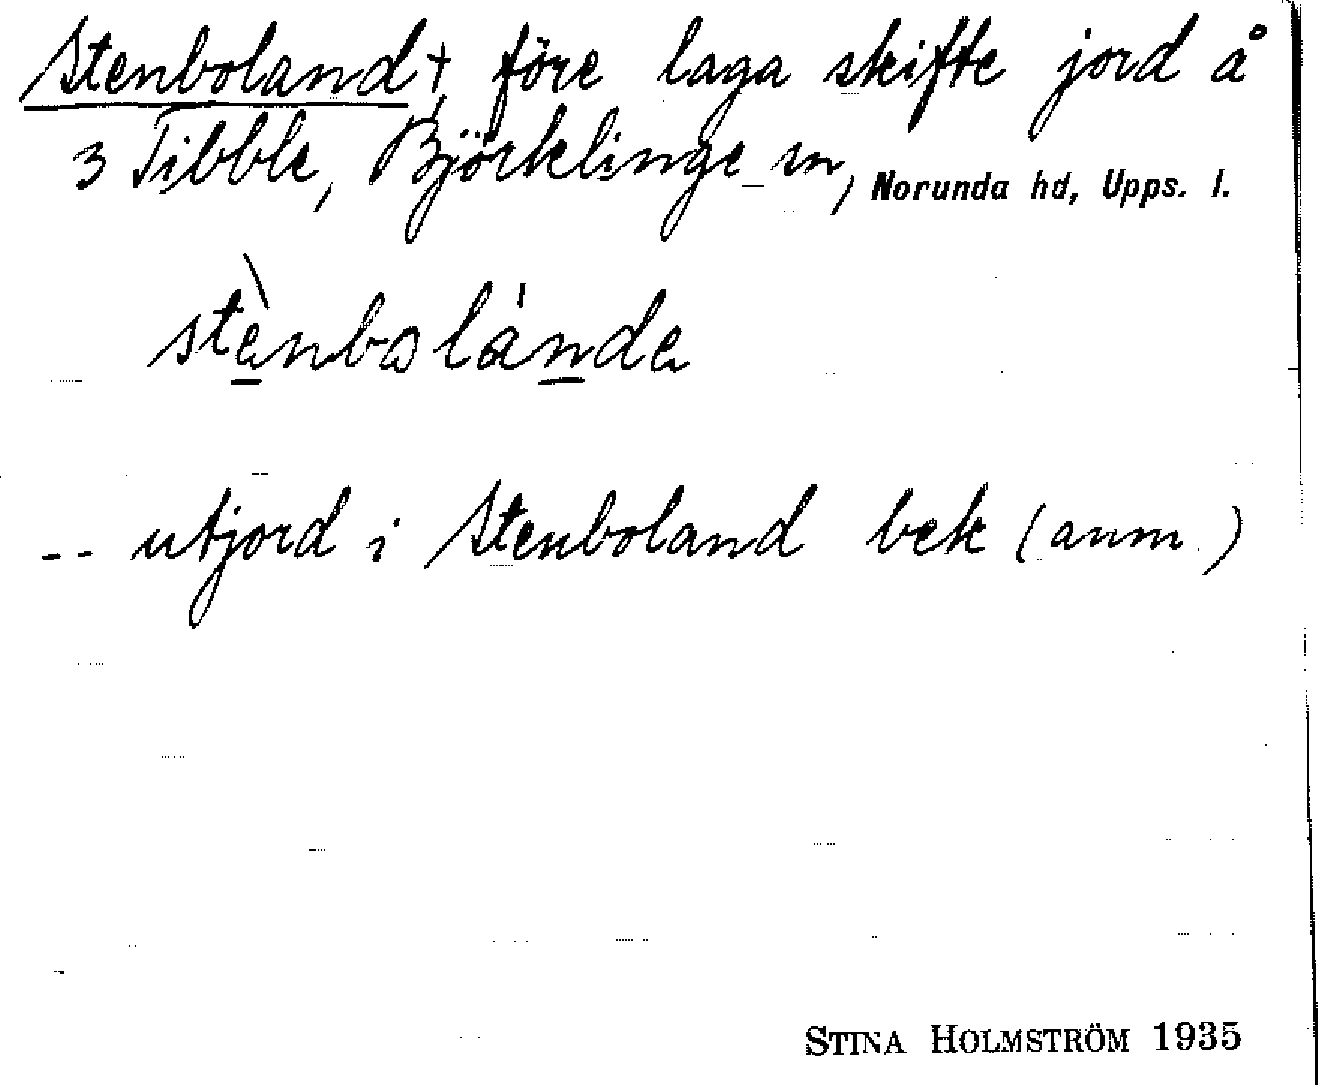 Stenboland †, före laga skifte jord å
3 Tibble, Björklinge sn, Norunda hd, Upps. l.
stènbolánda
-- utjord i Stenboland bek (anm.)
STINA HOLMSTRÖM 1935